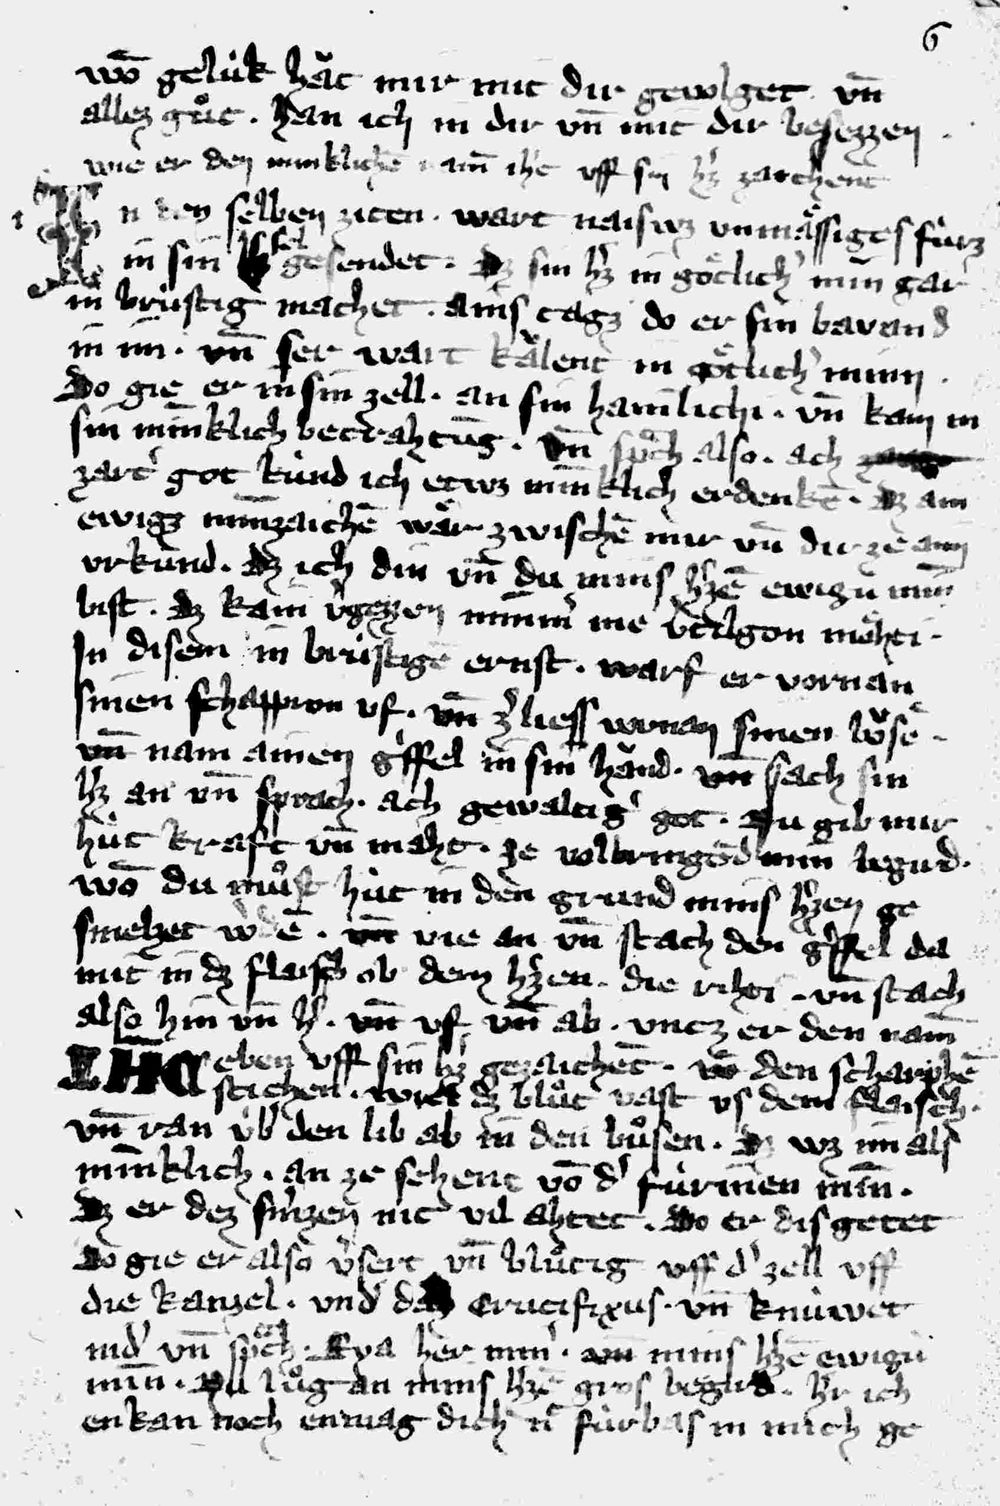 6
wō gelúk hăt mir mit dir gewolget vn̄
allez gůt. han ich in dir vn̄ mit dir besezzen.
wie er den minklichē namē ihc uff sin hˀz zaichent
In den selben ziten. wart naiswz vnmǎssiges fúrz
in sin sel gesendet. Dz sin hˀz in gőtlichˀ min̄ gar
in brústig machet. ains tagz do er sin bavand
in im. vn̄ ser wart kǎlent in gőtlichˀ minn.
Do gie er in sin zell. an sin hainlichi. vn̄ kam in
sin min̄klich betrahtūg. vn̄ sprach also. ach
zartˀ got kúnd ich etwz min̄klich erdenkē. Dz ain
ewigz minzaichē wǎr zwischē mir vn̄ dir ze ainē
vrkúnd. Dz ich din vn̄ du mins hˀzē ewigú min̄
bist. Dz kain vˀgezzen nim̄mˀ me vˀtilgon mőhti.
In disem in brústigē ernst. warf er vornan
sinen schappron uf. vn̄ zˀliess vornan sinen bůsē.
vn̄ nam ainen gˀffel in sin hǎnd. vn̄ sach sin
hˀz an vn̄ sprach. ach gewaltigˀ got. Nu gib mir
hút kraft vn̄ maht. ze volbringēd min begird.
wō du můst hút in den grund mins hˀzen ge
smelzet wˀdē. vn̄ vie an vn̄ stach den gˀffel da
mit in dz flaisch ob dem hˀzen. die rihti. vn̄ stach
also hin vn̄ hˀ. vn̄ uf vn̄ ab. vntz er den nam̄
IHC eben uff sin hˀz gezaichet. vō den scharphē
stichen. wiel dz blůt vast us dem flaisch.
vn̄ ran úbˀ den lib ab in den bůsen. Dz wz im als
min̄klich. an ze sehent vō dˀ fúrinen min̄.
Dz er dez smˀzen nit vil ahtet. Do er dis getet
Do gie er also vˀsert vn̄ blůtig uff dˀ zell uff
die kanzel. undˀ daz Crucifixus. vn̄ knúwet
nidˀ vn̄ sprach. Eya her minˀ. vn̄ mins hˀzē ewigú
min̄. Nu lůg an mins hˀzē gros begird. hˀr ich
enkan noch enmag dich nˀ fúrbas in mich ge